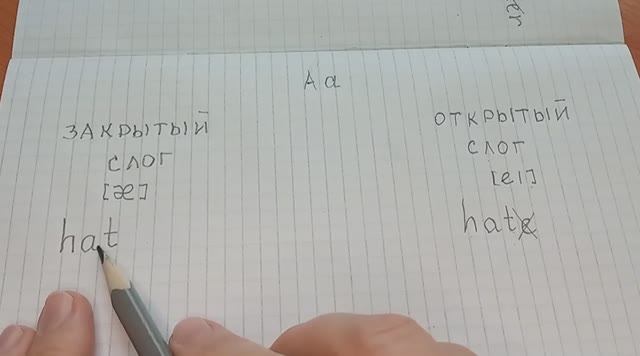 Aa
ЗАКРЫТЫЙ
СЛОГ
[æ]
hat
ОТКРЫТЫЙ
СЛОГ
[ei]
hate